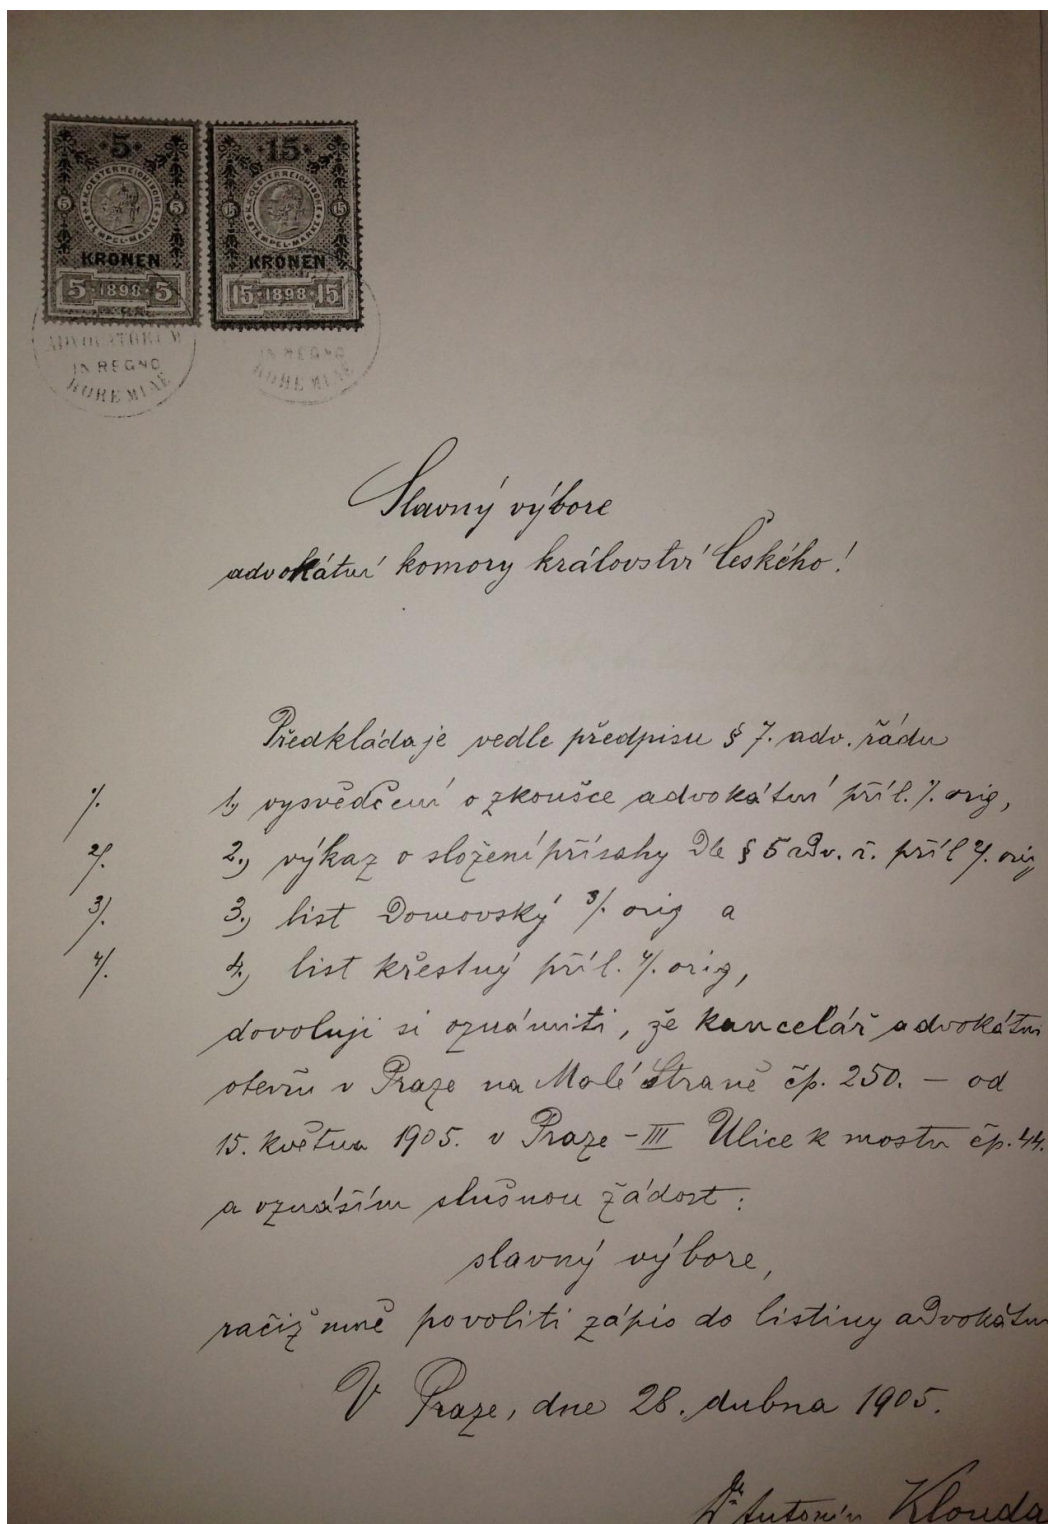 5 15
K.K. OESTERREICHISCHE STEMPEL-MARKE K.K. OESTERREICHISCHE STEMPEL-MARKE
5 5 15 15
KRONEN KRONEN
5 1898 5 15 1898 15
ADVOCATORUM
IN REGNO IN REGNO
BOHEMIAE BOHEMIAE
Slavný výbore
advokátní komory království Českého!
Předkládaje vedle předpisu § 7. adv. řádu
1/. 1.) vysvědčení o zkoušce advokátní příl. 1/. orig,
2/. 2.) výkaz o složení přísahy dle § 5 adv. ř. příl 2/. orig
3/. 3.) list domovský 3/. orig a
4/. 4.) list křestný příl. 4/. orig,
dovoluji si oznámiti, že kancelář advokátní
otevru v Praze na Malé Straně čp. 250. – od
15. května 1905. v Praze – III Ulice k mostu čp. 44.
a vznáším slušnou žádost:
slavný výbore,
račiž mně povoliti zápis do listiny advokátní
V Praze, dne 28. dubna 1905.
Dr Antonín Klouda